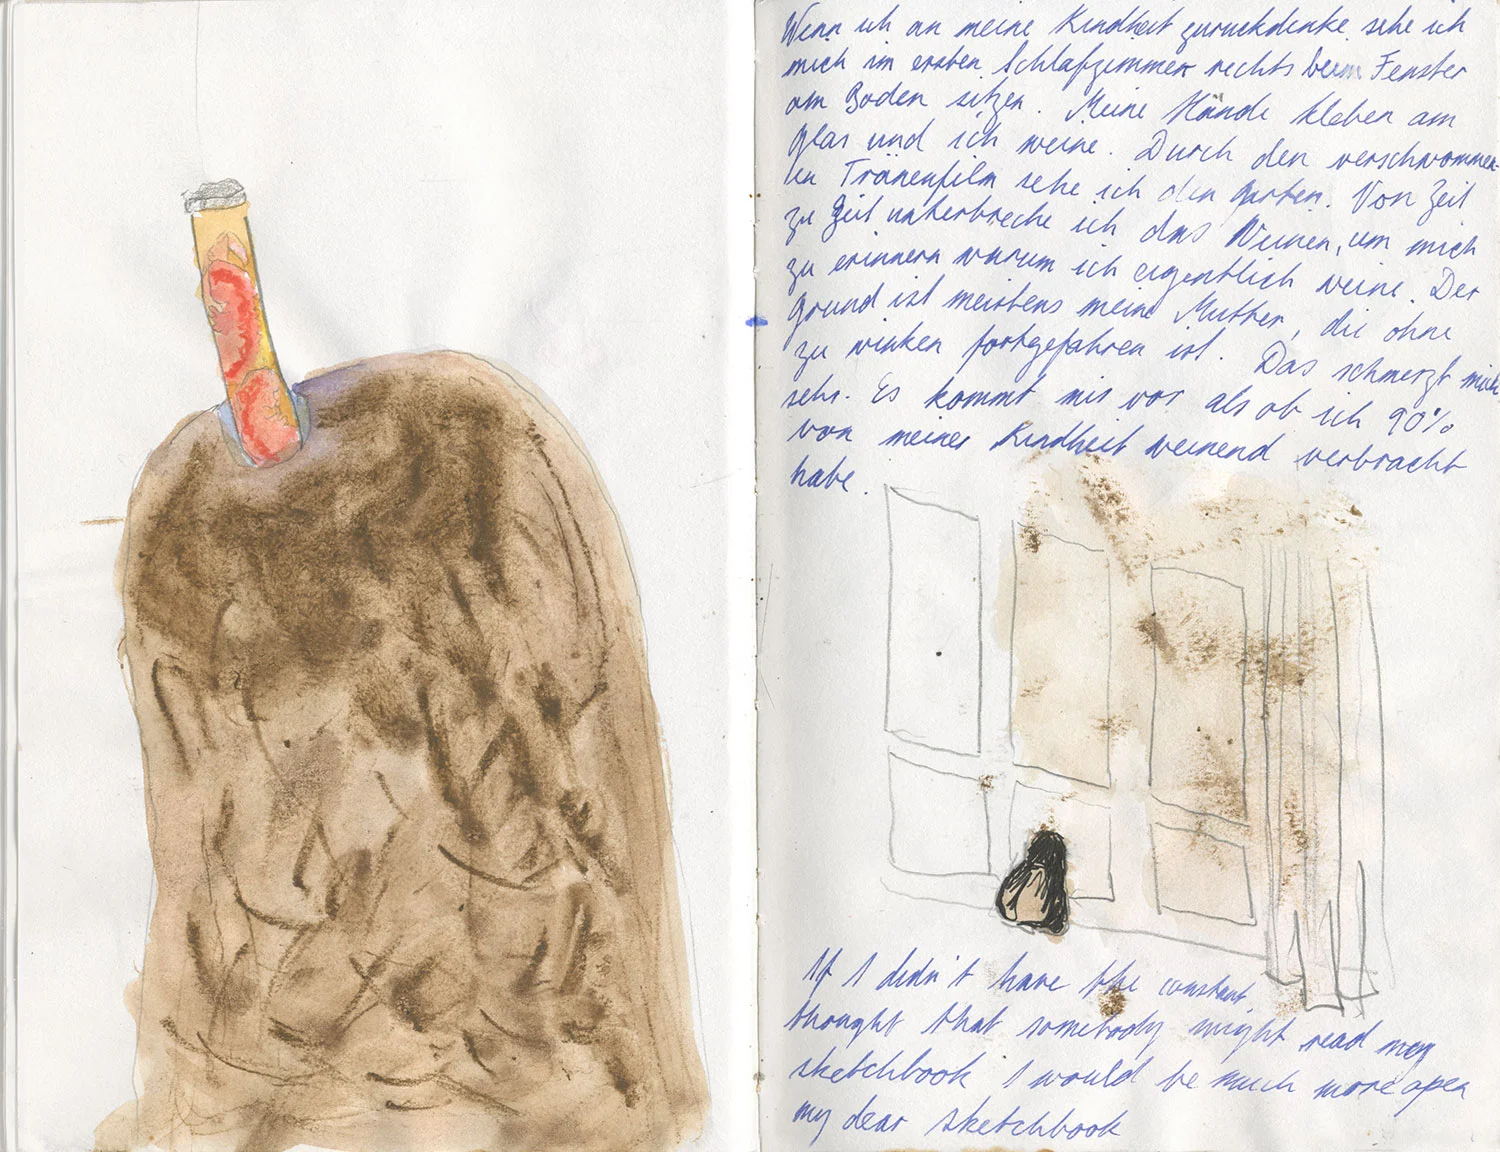 Wenn ich an meine Kindheit zurückdenke sehe ich
mich im ersten Schlafzimmer rechts beim Fenster
am Boden sitzen. Meine Hände kleben am
Glas und ich weine. Durch den verschwommen-
en Tränenfilm sehe ich den Garten. Von Zeit
zu Zeit unterbreche ich das Weinen, um mich
zu erinnern warum ich eigentlich weine. Der
Grund ist meistens meine Mutter, die ohne
zu winken fortgefahren ist. Das schmerzt mich
sehr. Es kommt mir vor als ob ich 90%
von meiner Kindheit weinend verbracht
habe.
If I didn't have the constant
thought that somebody might read my
sketchbook I would be much more open
my dear sketchbook